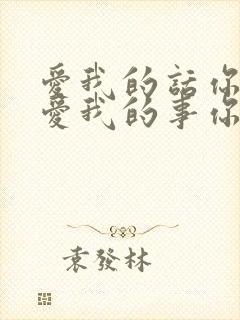 愛我的話你
愛我的事你
袁發林